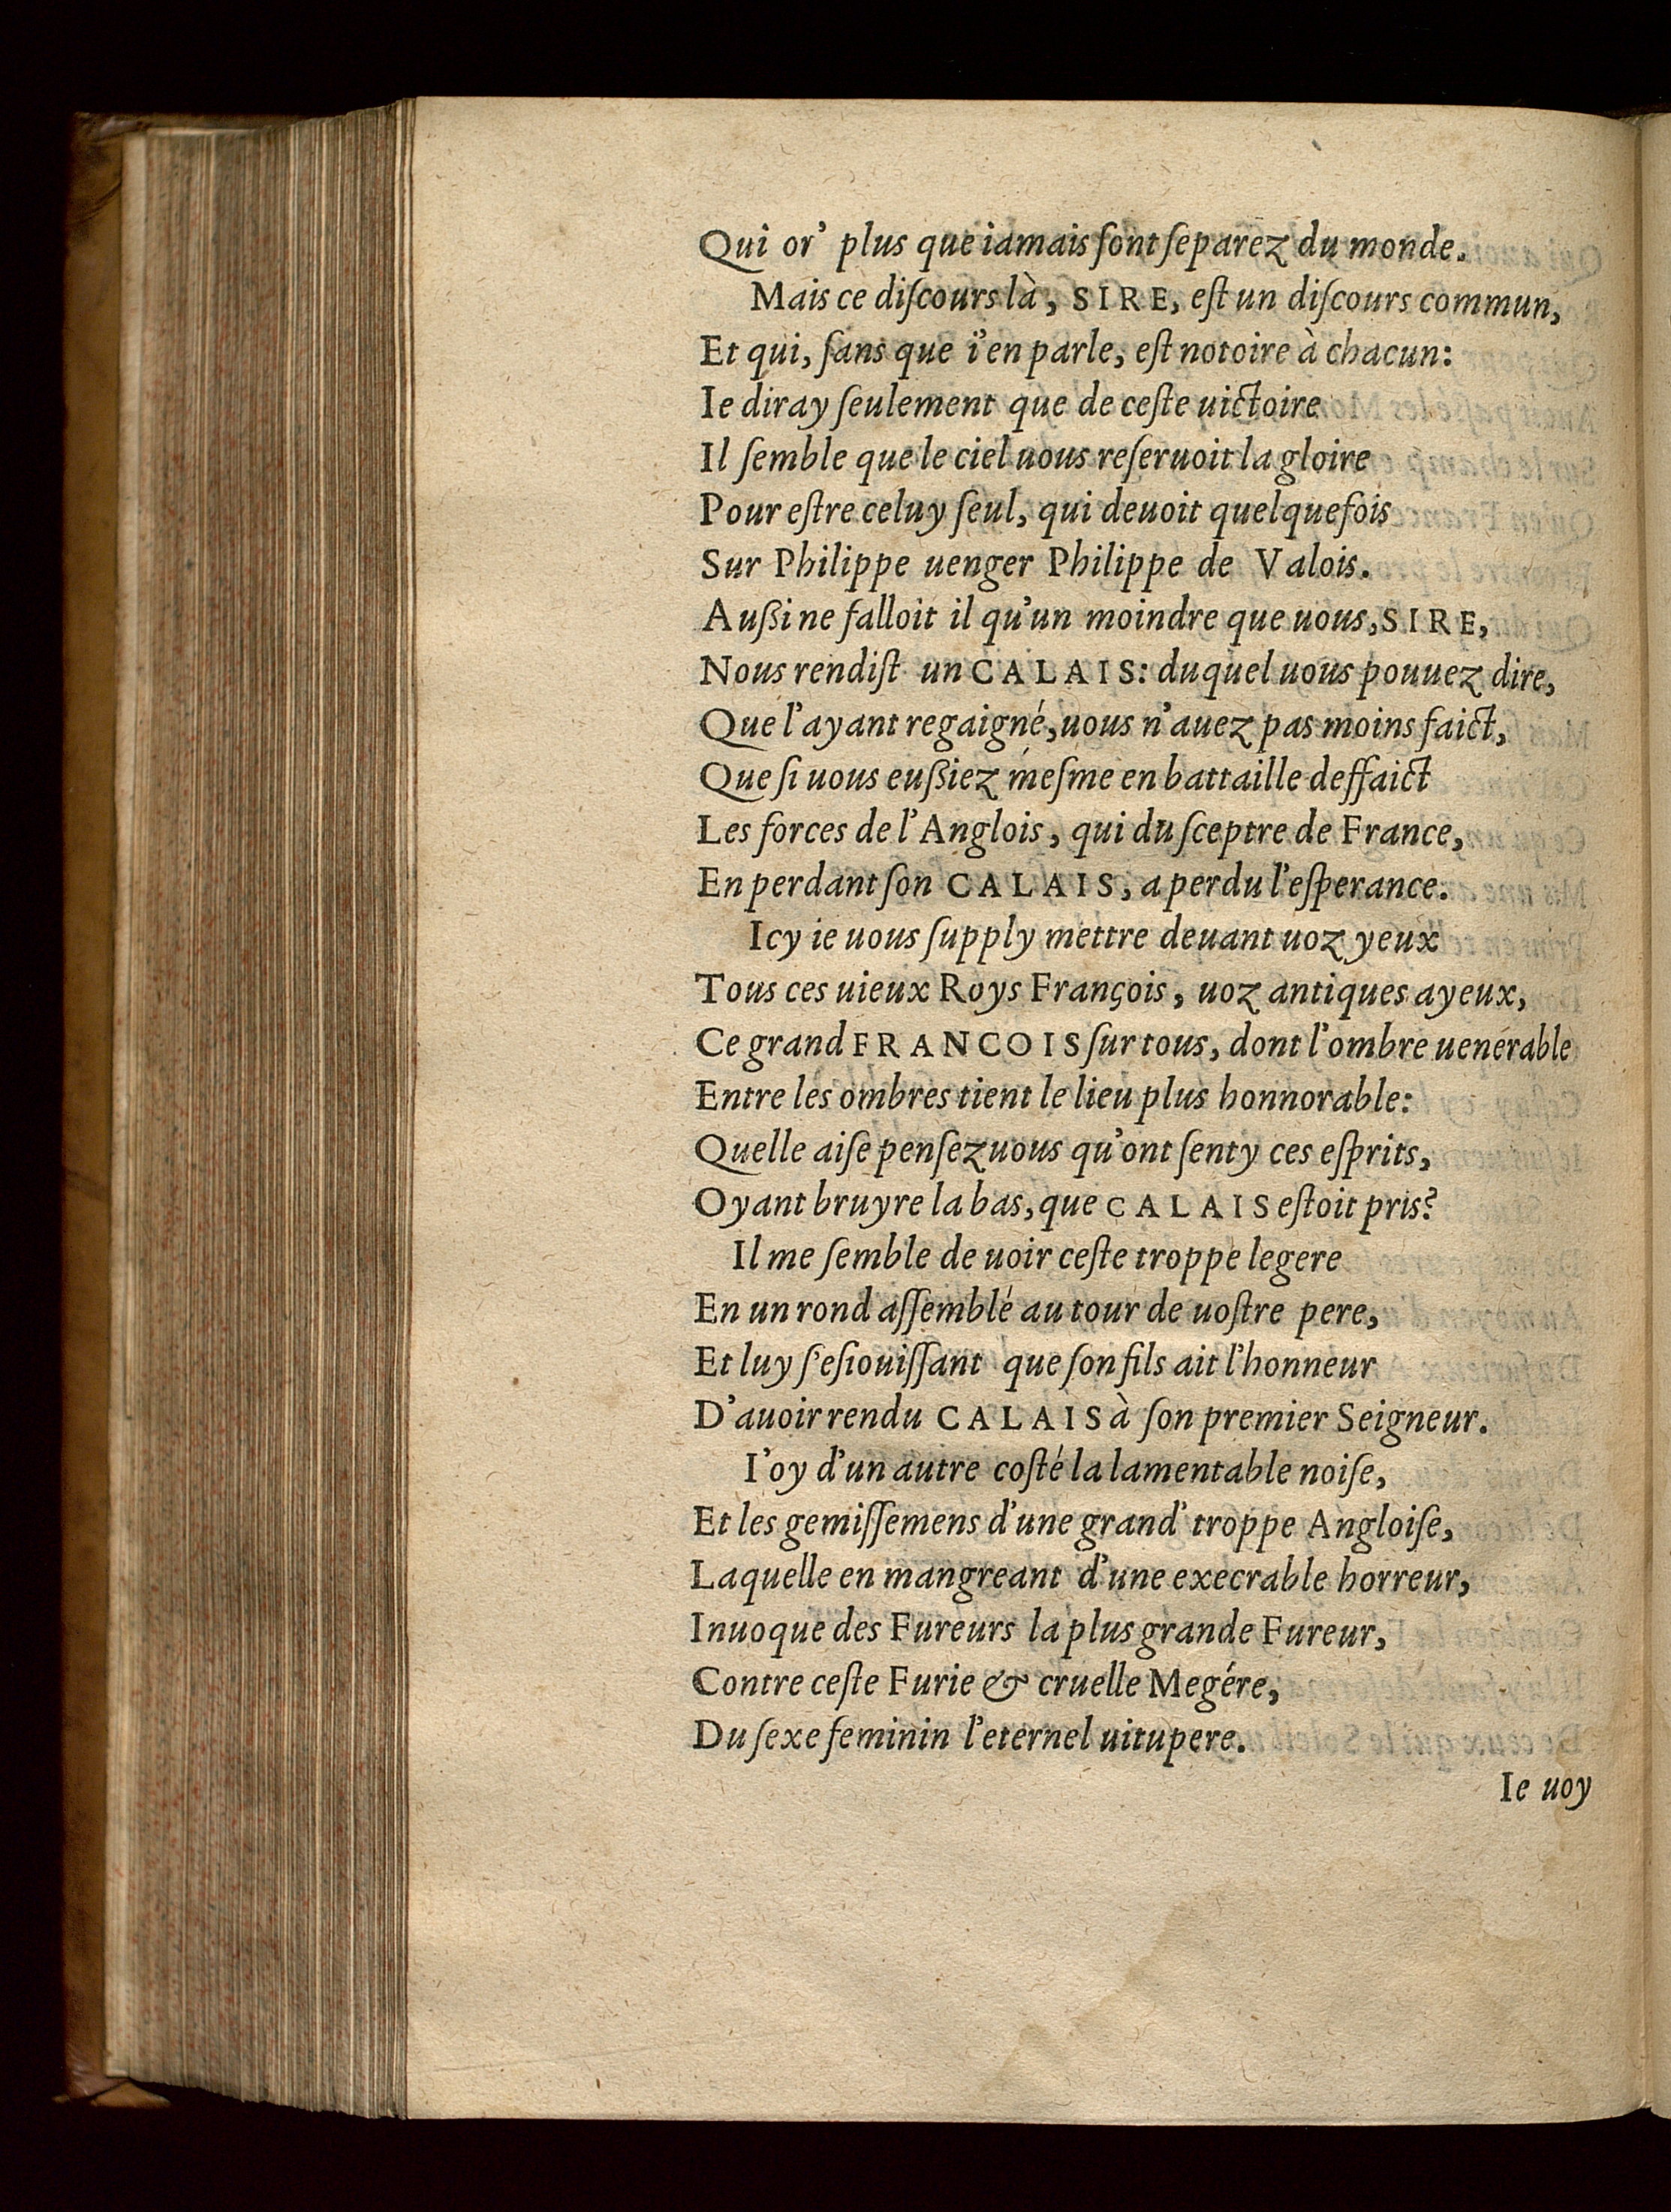 Qui or' plus que iamais ſont ſeparez du monde.
Mais ce diſcours là, SIRE, eſt un diſcours commun,
Et qui, ſans que i'en parle, eſt notoire à chacun:
Ie diray ſeulement que de ceſte uictoire
Il ſemble que le ciel uous reſeruoit la gloire
Pour eſtre celuy ſeul, qui deuoit quelquefois
Sur Philippe uenger Philippe de Valois.
Außi ne falloit il qu'un moindre que uous, SIRE,
Nous rendiſt un CALAIS: duquel uous pouuez dire,
Que l'ayant regaigné, uous n'auez pas moins faict,
Que ſi uous eußiez meſme en battaille deffaict
Les forces de l'Anglois, qui du ſceptre de France,
En perdant ſon CALAIS, a perdu l'eſperance.
Icy ie uous ſupply mettre deuant uoz yeux
Tous ces uieux Roys François, uoz antiques ayeux,
Ce grand FRANCOIS ſur tous, dont l'ombre uenerable
Entre les ombres tient le lieu plus honnorable:
Quelle aiſe penſez uous qu'ont ſenty ces eſprits,
Oyant bruyre la bas, que CALAIS eſtoit pris?
Il me ſemble de uoir ceſte troppe legere
En un rond aſſemblé au tour de uoſtre pere,
Et luy ſ'eſiouiſſant que ſon fils ait l'honneur
D'auoir rendu CALAIS à ſon premier Seigneur.
I'oy d'un autre coſté la lamentable noiſe,
Et les gemiſſemens d'une grand' troppe Angloiſe,
Laquelle en mangreant d'une execrable horreur,
Inuoque des Fureurs la plus grande Fureur,
Contre ceſte Furie & cruelle Megére,
Du ſexe feminin l'eternel uitupere.
Ie uoy